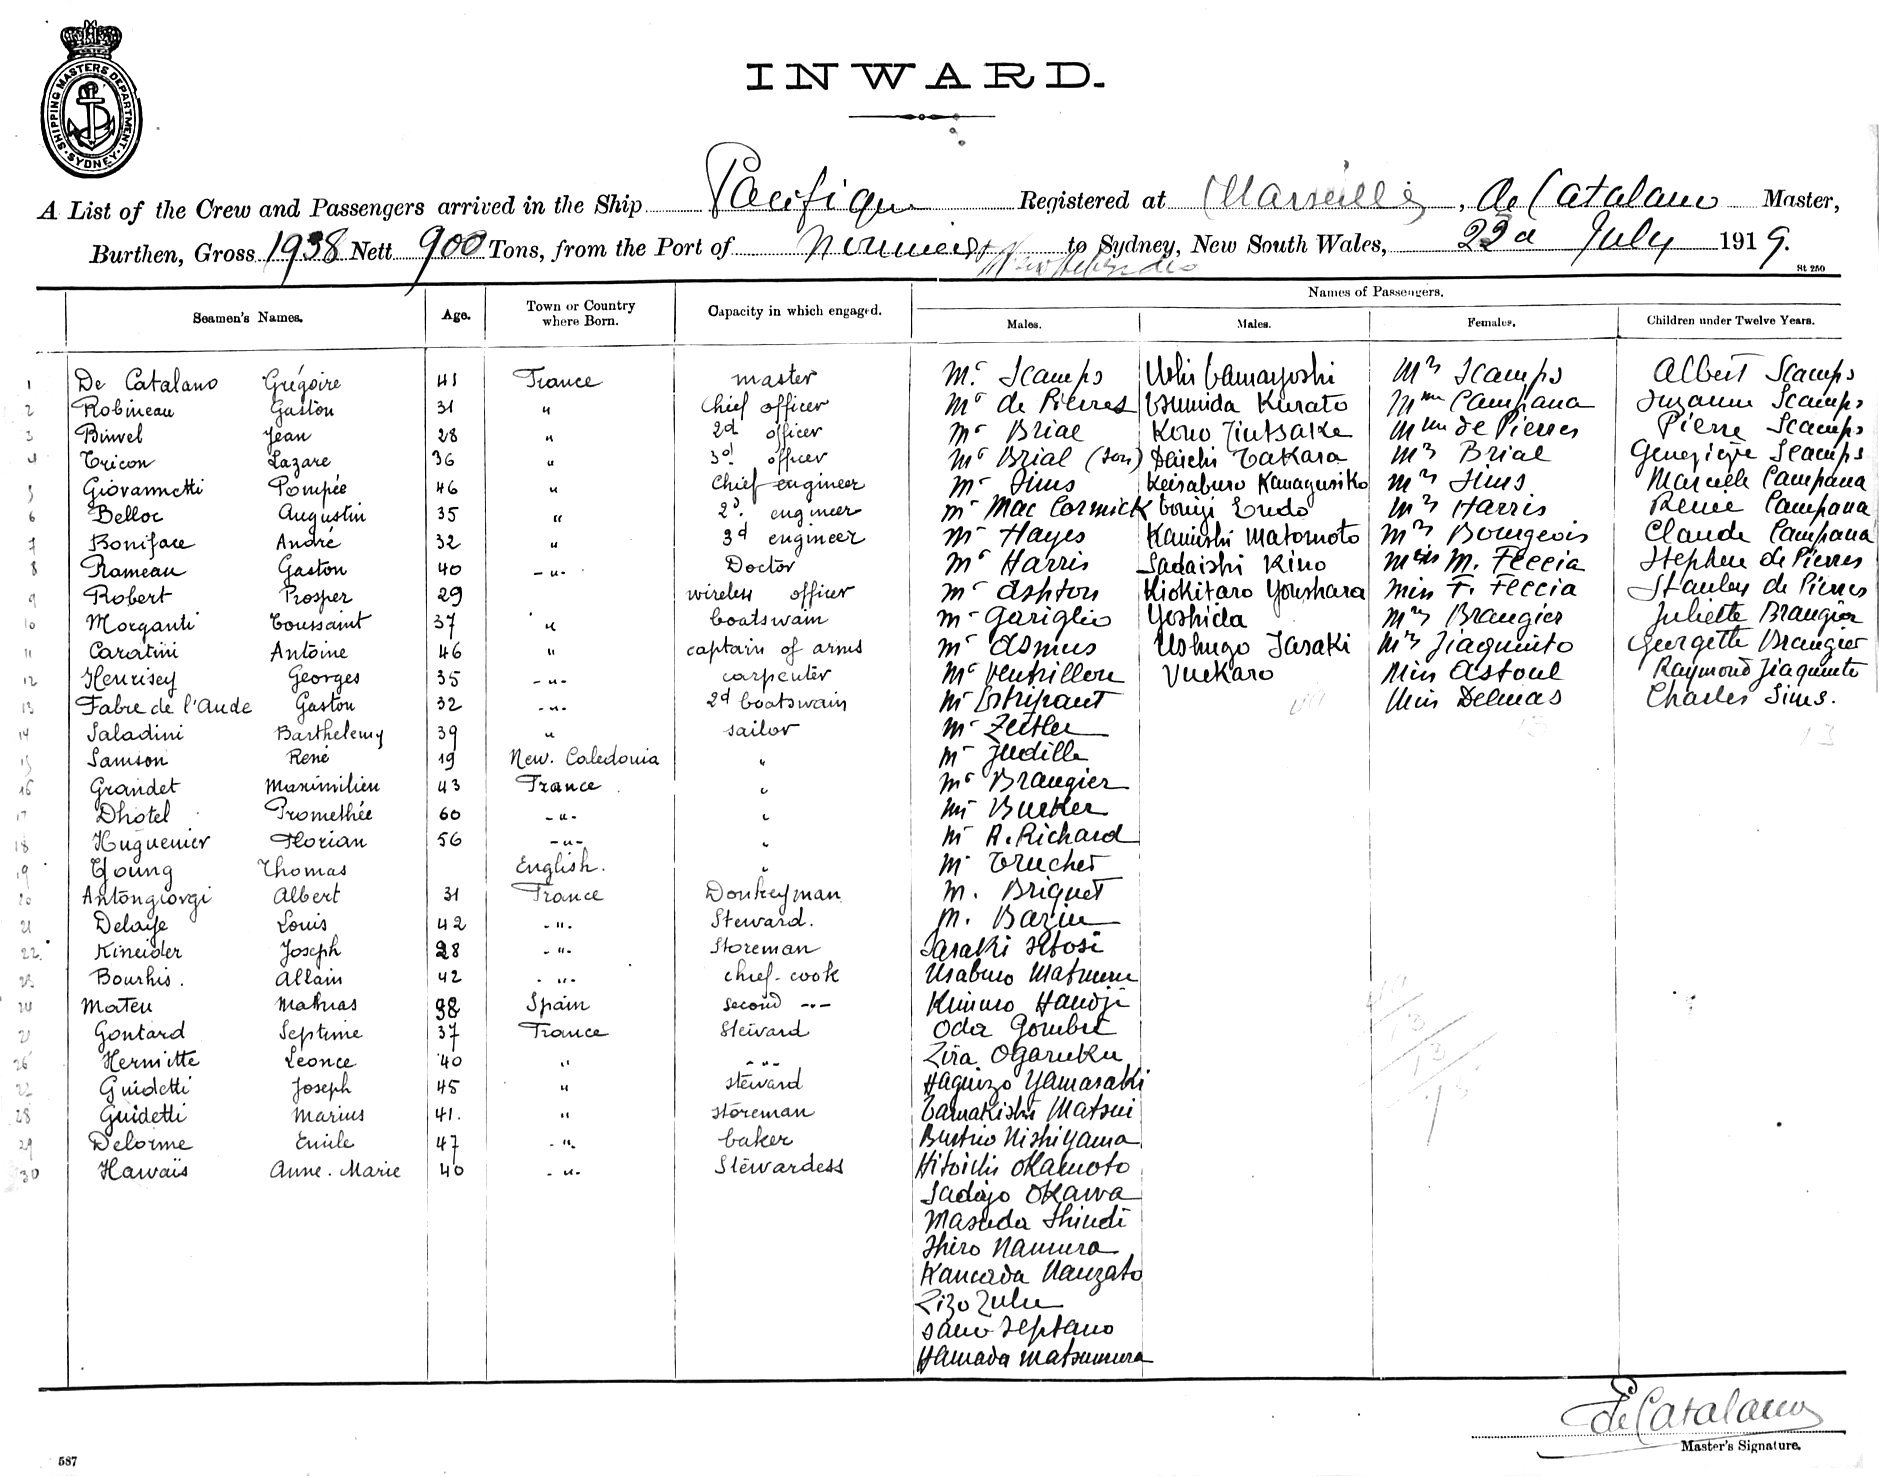 SHIPPING MASTERS DEPARTMENT. SYDNEY.
INWARD.
A List of the Crew and Passengers arrived in the Ship Pacifique Registered at Marseille, de Catalano Master,
Burthen, Gross 1938 Nett 900 Tons, from the Port of Noumea & New Hebrides to Sydney, New South Wales, 23d July 1919.
St 250
Seamen's Names. Age. Town or Country where Born. Capacity in which engaged. Names of Passengers.
Males. Males. Females. Children under Twelve Years.
1 De Catalano Grégoire 41 France master Mr. Scamps Mrs Scamps Albert Scamps
2 Robineau Gaston 31 " Chief officer Mr de Pierres Tsumida Kurato Mme Campana Suzanne Scamps
3 Binvel Jean 28 " 2d officer Mr Brial Kono Jintsake Mme de Pierres Pierre Scamps
4 Tricon Lazare 36 " 3d officer Mr Brial (son) Daichi Takara Mrs Brial Geneviève Scamps
5 Giovannetti Pompée 46 " Chief engineer Mr Sims Keisaburo Kanagusiko Mrs Sims Marcelle Campana
6 Belloc Augustin 35 " 2d. engineer Mr Mac Cormick Tomiji Endo Mrs Harris Renée Campana
7 Boniface André 32 " 3d engineer Mr Hayes Kamishi Matomoto Mrs Bourgeois Claude Campana
8 Rameau Gaston 40 -"- Doctor Mr Harris Sadaishi Kino Miss M. Feccia Stephen de Pierres
9 Robert Prosper 29 wireless officer Mr Ashton Kiokitaro Yonshara Miss F. Feccia Stanley de Pierres
10 Morganti Toussaint 37 " boatswain Mr Gariglio Yoshida Mrs Braugier Juliette Braugier
11 Caratini Antoine 46 " captain of arms Mr Asmus Ushugo Sasaki Mrs Jiaquinto Georgette Braugier
12 Henrisey Georges 35 -"- carpenter Mr Ventrillon Vuckaro Miss Astoul Raymond Jiaquinto
13 Fabre de l'Aude Gaston 32 -"- 2d boatswain Mr Estripaut Miss Delmas Charles Sims.
14 Saladini Barthelemy 39 " sailor Mr Zeitler 13 13
15 Samson René 19 New. Caledonia " Mr Judille
16 Grandet Maximilien 43 France " Mr Braugier
17 Dhotel Promethée 60 -"- " Mr Burker
18 Huguenier Florian 56 -"- " Mr A. Richard
19 Young Thomas English. " Mr Truchet
20 Antongiorgi Albert 31 France Donkeyman M. Briquet
21 Delaye Louis 42 -"- Steward. M. Bazin
22 Kineider Joseph 28 -"- Storeman Sasaki Itosi
23 Bourhis. Allain 42 -"- chief-cook Usaburo Matumura
24 Mateu Mathias 38 Spain second -"- Kimuro Handji
25 Gontard Septime 37 France Steward Oda Gombei
26 Hermitte Leonce 40 " -"- Zira Ogaruku
27 Guidetti Joseph 45 " steward Haguizo Yamasaki
28 Guidetti Marius 41. " storeman Tamakishi Matsui
29 Delorme Emile 47 -"- baker Buntiro Nishiyama
30 Hawaïs Anne-Marie 40 -"- Stewardess Hitoichi Okamoto
Sadojo Okawa
Masuda Shindi
Shiro Namura
Kaneada Nanzato
Zizo Zulu
Sano Septano
Hamada Matsumura
de Catalano
Master's Signature.
587